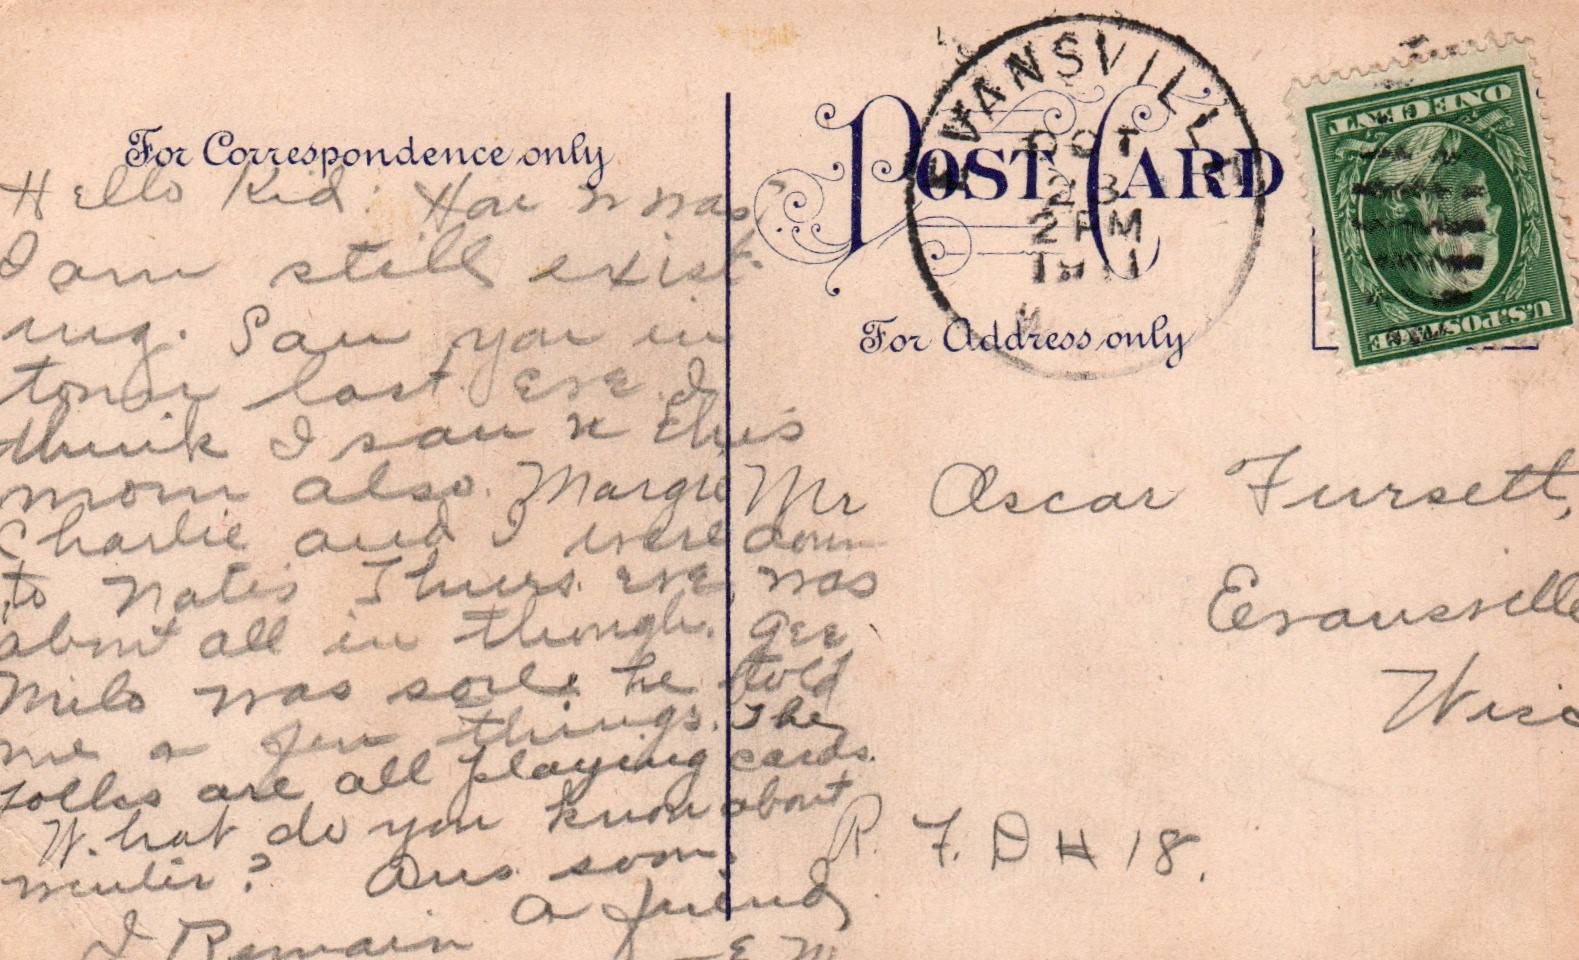 For Correspondence only
Hello Kid: How
I am still exist-
ing. Saw you in
town last Eve. I
think I saw
mom also. Margie
Charlie and I were down
to Nate's Thurs. eve, was
about all in though. Gee
Milo was sore he told
me a few things. The
folks are all playing cards.
What do you know about
winter? Ans soon.
I Remain a friend
E M
EVANSVILLE
OCT
23
2 PM
1911
POST CARD
For Address only
ONE CENT
U.S. POSTAGE
Mr Oscar Fursett,
Evansville
Wisc
R. F. D # 18.